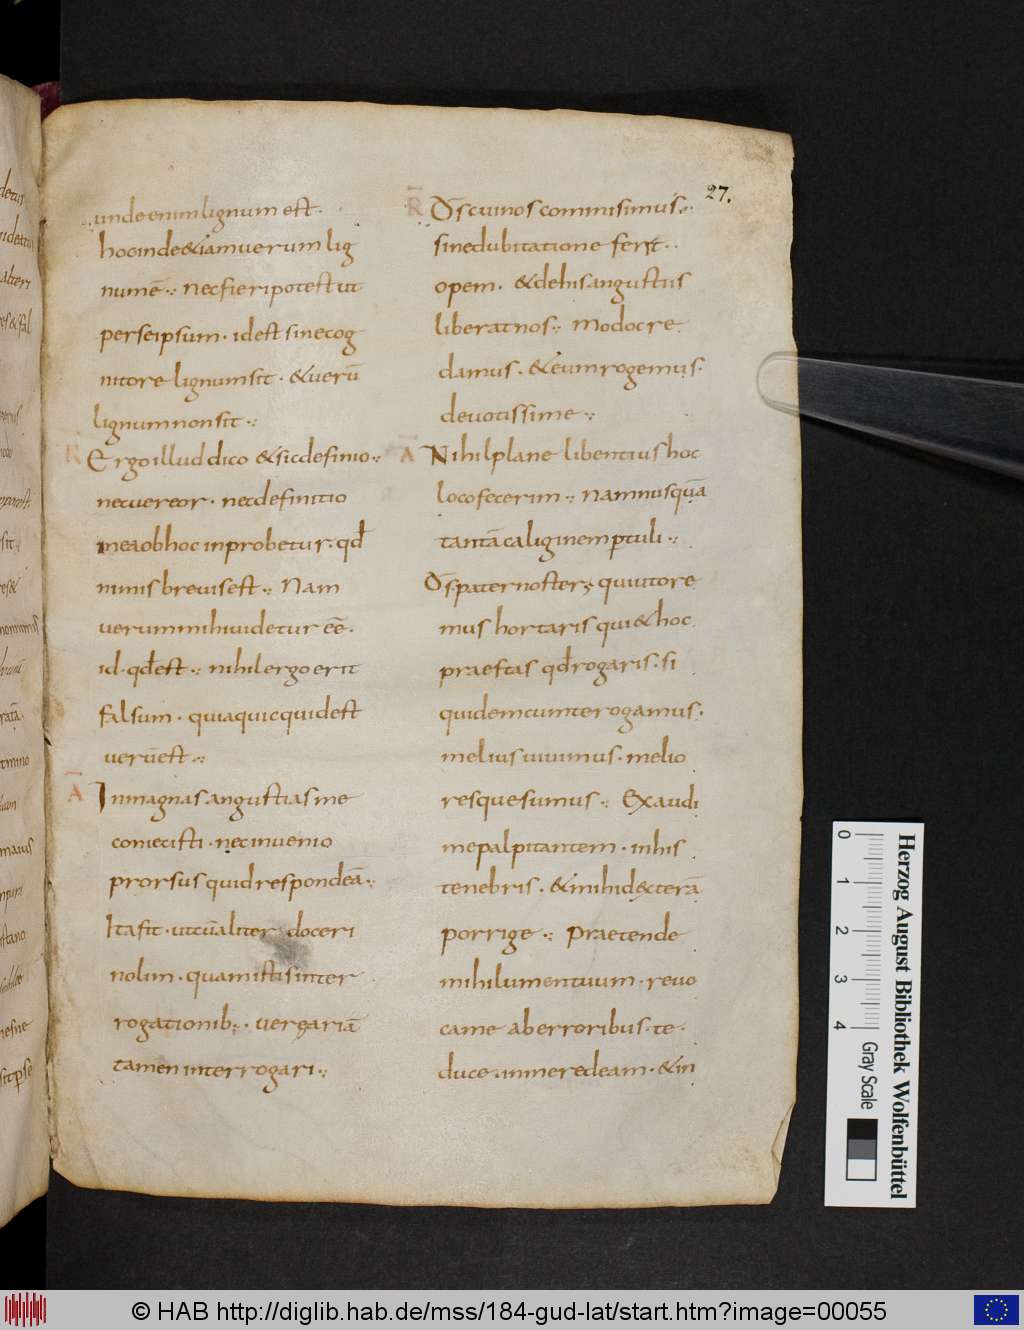 27.
unde enim lignum est.
hoc inde & iam uerum lig
num ē ·: nec fieri potest ut
per se ipsum · id est sine cog
nitore lignum sit · & uerū
lignum non sit ·:
R Ergo illud dico & sic definio ·:
nec uereor · nec definitio
mea ob hoc inprobetur · qđ
nimis breuis est ·: Nam
uerum mihi uidetur eē ·
id · qđ est ·: nihil ergo erit
falsum · quia quicquid est
uerū est ·:
A In magnas angustias me
coniecisti · nec inuenio
prorsus quid respondeā ·:
Ita fit · ut cū aliter doceri
nolim · quam istis inter
rogationib; · uerear iā
tamen interrogari ·:
R Ds̄ cui nos commisimus ·:
sine dubitatione fert ·
opem · & de his angustiis
liberat nos ·: modo cre
damus · & eum rogemus ·
deuotissime ·:
A Nihil plane libentius hoc
loco fecerim ·: nam nusquā
tantā caliginem ptuli ·:
Ds̄ pater noster · qui ut ore
mus hortaris qui & hoc
praestas qđ rogaris · si
quidem cum te rogamus ·
melius uiuimus · melio
resque sumus ·: Exaudi
me palpitantem · in his
tenebris · & mihi dexterā
porrige ·: Praetende
mihi lumen tuum · reuo
ca me ab erroribus · te ·
duce · in me redeam · & in
0
1
2
3
4
Gray Scale
Herzog August Bibliothek Wolfenbüttel
© HAB http://diglib.hab.de/mss/184-gud-lat/start.htm?image=00055